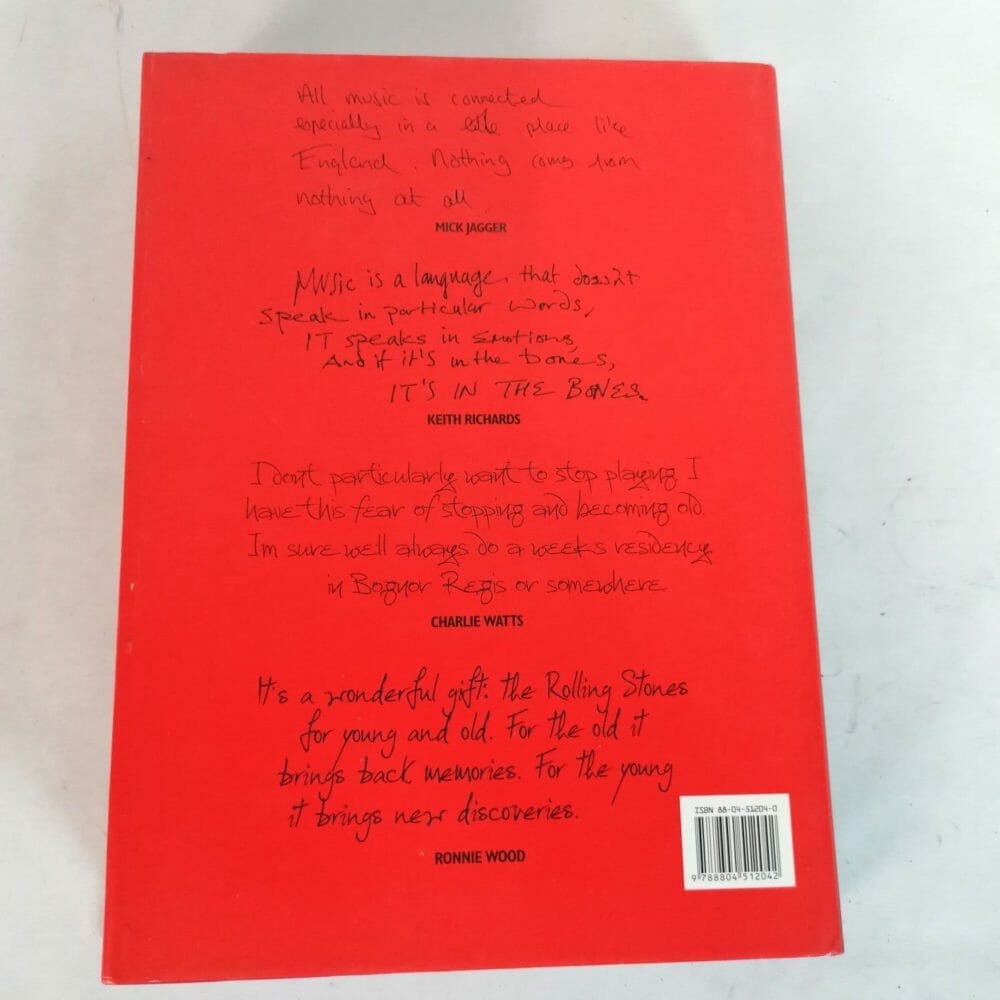 All music is connected
especially in a little place like
England. Nothing comes from
nothing at all
MICK JAGGER
Music is a language, that doesn't
speak in particular words,
IT speaks in Emotions,
And if it's in the bones,
IT'S IN THE BONES.
KEITH RICHARDS
I dont particularly want to stop playing I
have this fear of stopping and becoming old.
Im sure well always do a weeks residency
in Bognor Regis or somewhere
CHARLIE WATTS
It's a wonderful gift: the Rolling Stones
for young and old. For the old it
brings back memories. For the young
it brings new discoveries.
RONNIE WOOD
ISBN 88-04-51204-0
9 788804 512042